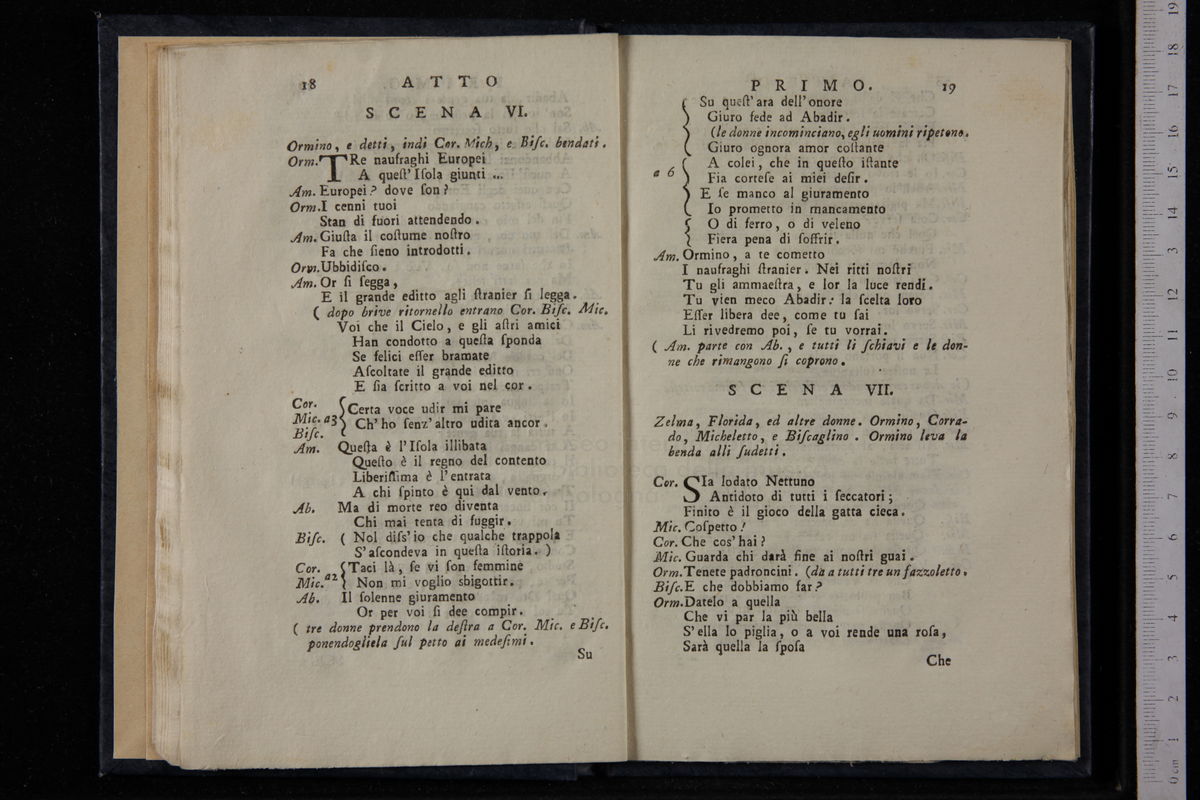 18 ATTO
SCENA VI.
Ormino, e detti, indi Cor. Mich, e Biſc. bendati.
Orm. TRe naufraghi Europei
A queſt' Iſola giunti ...
Am. Europei? dove ſon?
Orm. I cenni tuoi
Stan di fuori attendendo.
Am. Giuſta il coſtume noſtro
Fa che ſieno introdotti.
Orm. Ubbidiſco.
Am. Or ſi ſegga,
E il grande editto agli ſtranier ſi legga.
( dopo brive ritornello entrano Cor. Biſc. Mic.
Voi che il Cielo, e gli aſtri amici
Han condotto a queſta ſponda
Se felici eſſer bramate
Aſcoltate il grande editto
E ſia ſcritto a voi nel cor.
Cor.
Mic. a3 { Certa voce udir mi pare
Biſc. Ch' ho ſenz' altro udita ancor.
Am. Queſta è l' Iſola illibata
Queſto è il regno del contento
Liberiſſima è l' entrata
A chi ſpinto è qui dal vento.
Ab. Ma di morte reo diventa
Chi mai tenta di fuggir.
Biſc. ( Nol diſs' io che qualche trappola
S' aſcondeva in queſta iſtoria. )
Cor. { Taci là, ſe vi ſon femmine
Mic. a2 Non mi voglio sbigottir.
Ab. Il ſolenne giuramento
Or per voi ſi dee compir.
( tre donne prendono la deſtra a Cor. Mic. e Biſc.
ponendogliela ſul petto ai medeſimi.
Su
PRIMO. 19
Su queſt' ara dell' onore
Giuro fede ad Abadir.
(le donne incominciano, e gli uomini ripetono.
Giuro ognora amor coſtante
A colei, che in queſto iſtante
a 6 { Fia corteſe ai miei deſir.
E ſe manco al giuramento
Io prometto in mancamento
O di ferro, o di veleno
Fiera pena di ſoffrir.
Am. Ormino, a te cometto
I naufraghi ſtranier. Nei ritti noſtri
Tu gli ammaeſtra, e lor la luce rendi.
Tu vien meco Abadir: la ſcelta loro
Eſſer libera dee, come tu ſai
Li rivedremo poi, ſe tu vorrai.
( Am. parte con Ab., e tutti li ſchiavi e le don-
ne che rimangono ſi coprono.
SCENA VII.
Zelma, Florida, ed altre donne. Ormino, Corra-
do, Micheletto, e Biſcaglino. Ormino leva la
benda alli ſudetti.
Cor. SIa lodato Nettuno
Antidoto di tutti i ſeccatori;
Finito è il gioco della gatta cieca.
Mic. Coſpetto!
Cor. Che cos' hai?
Mic. Guarda chi darà fine ai noſtri guai.
Orm. Tenete padroncini. (da a tutti tre un fazzoletto.
Biſc. E che dobbiamo far?
Orm. Datelo a quella
Che vi par la più bella
S' ella lo piglia, o a voi rende una roſa,
Sarà quella la ſpoſa
Che